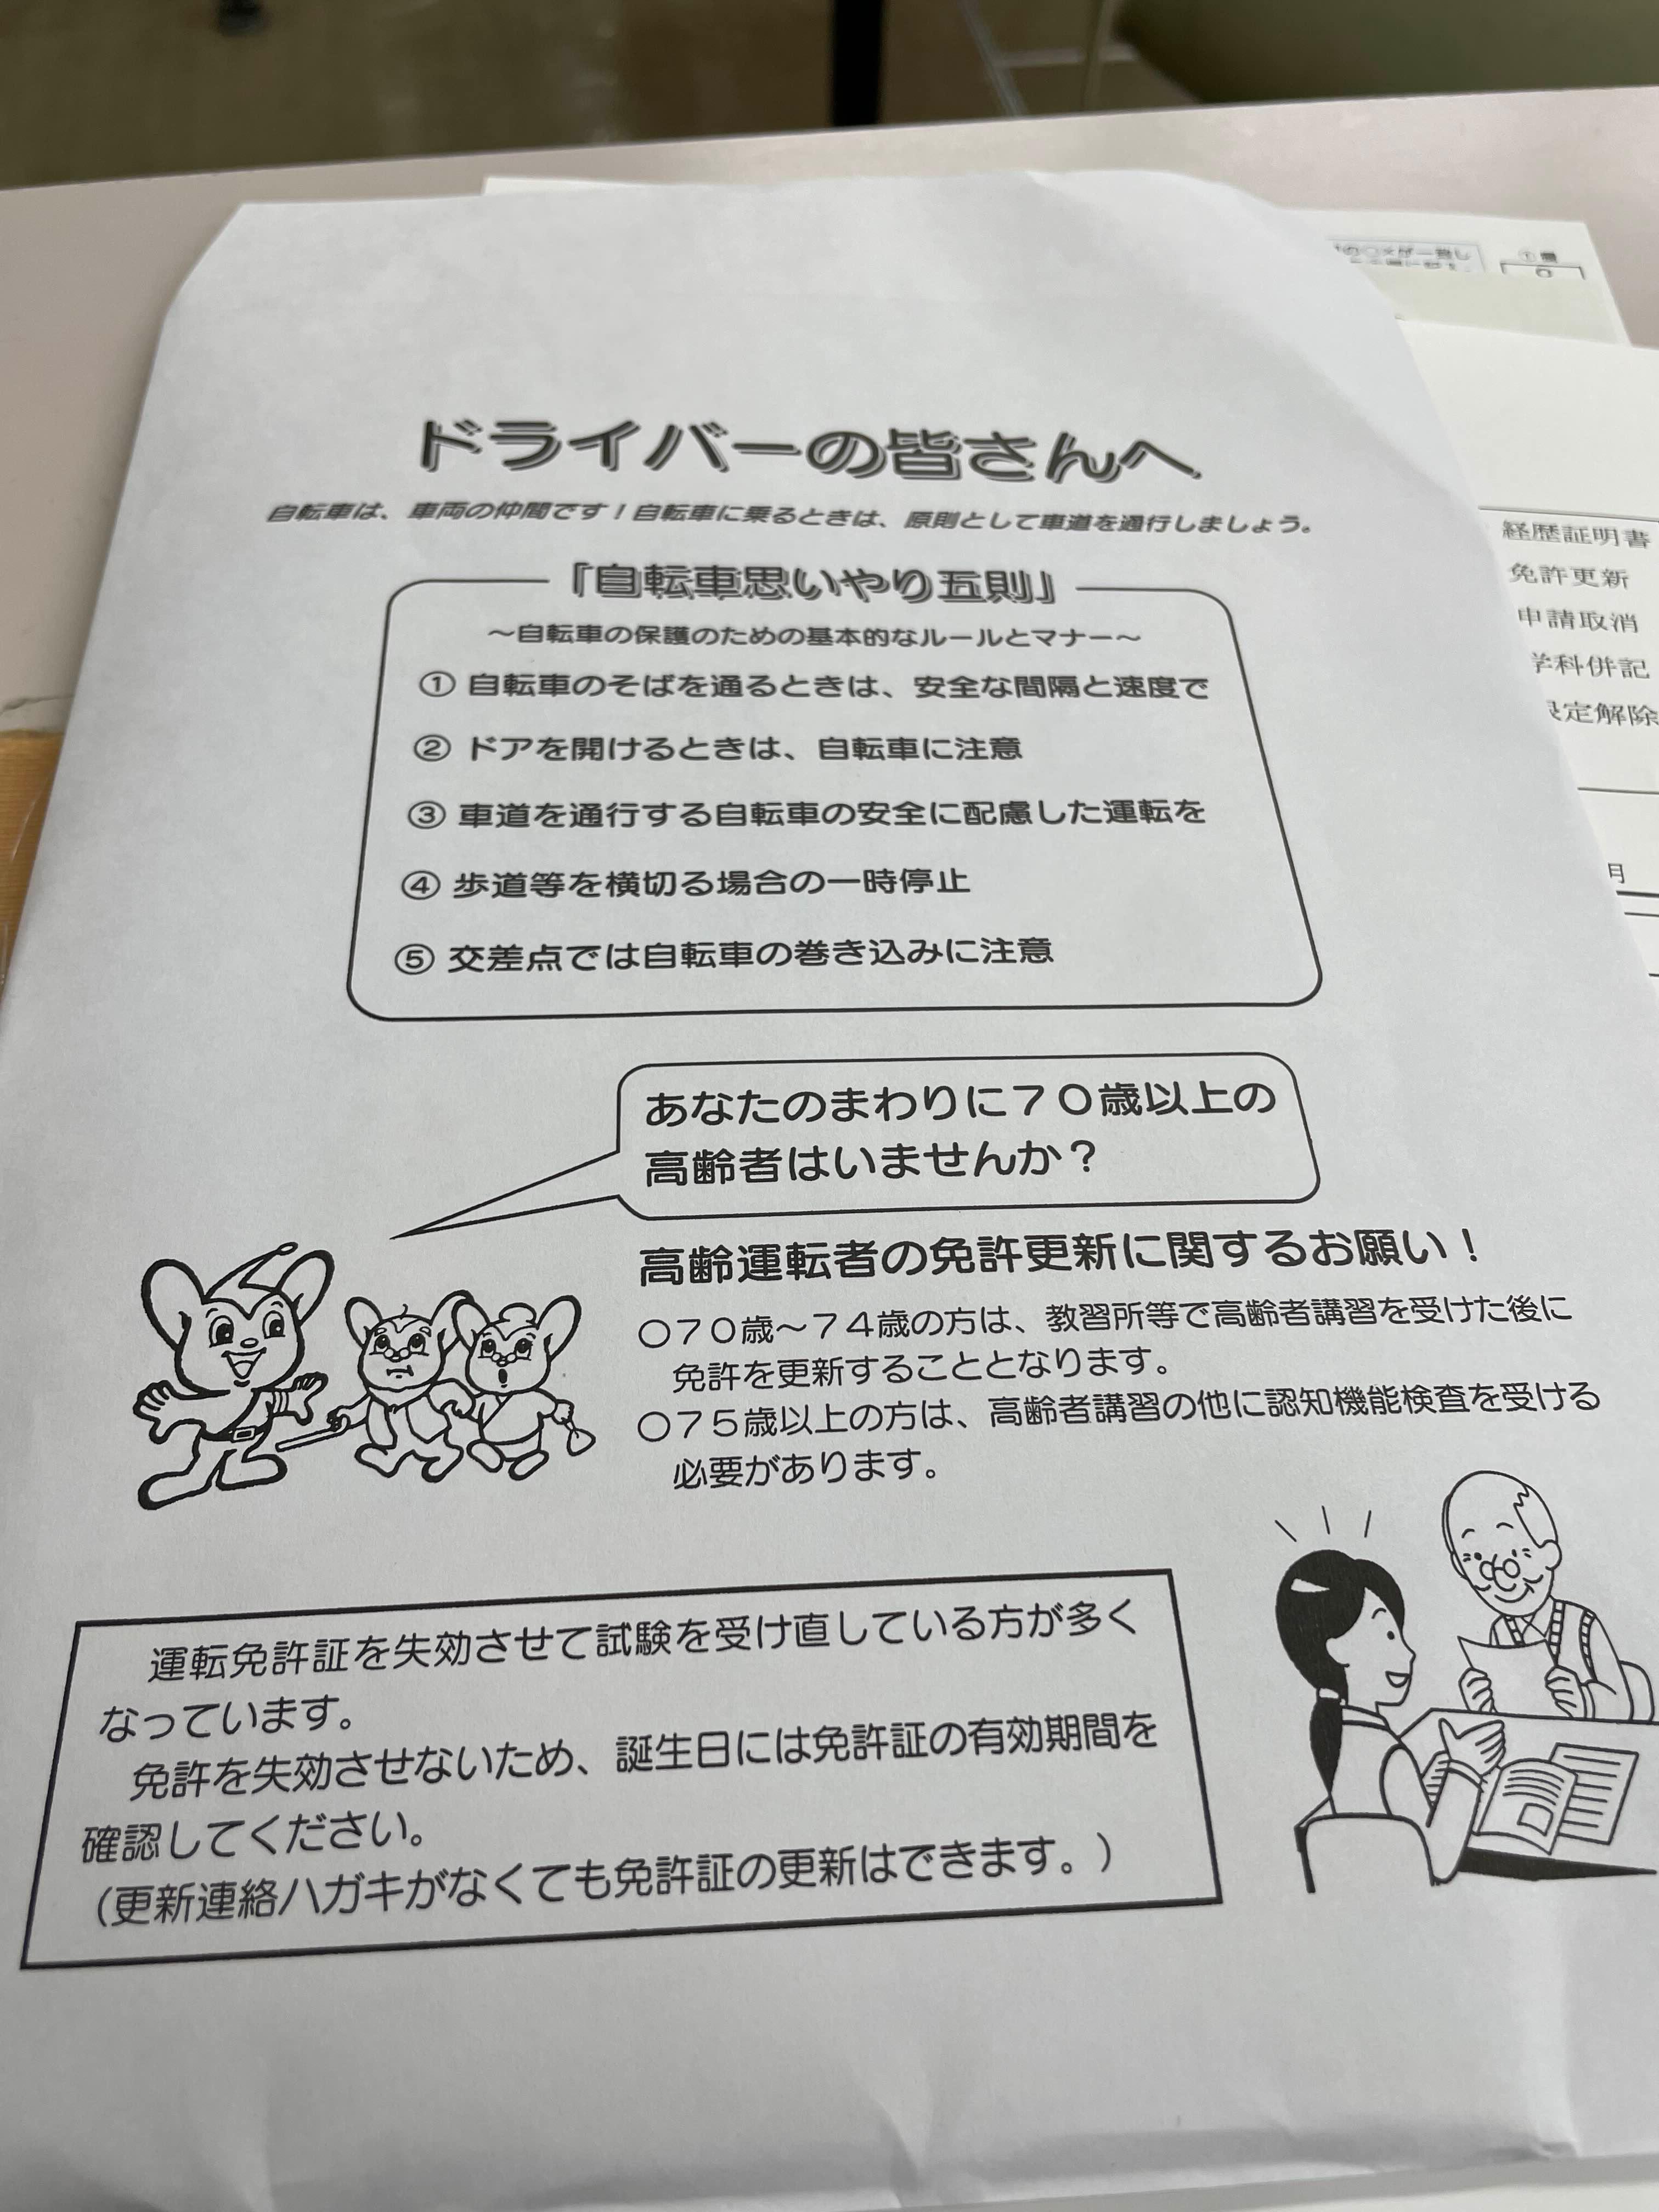 ドライバーの皆さんへ
自転車は、車両の仲間です！自転車に乗るときは、原則として車道を通行しましょう。
「自転車思いやり五則」
～自転車の保護のための基本的なルールとマナー～
① 自転車のそばを通るときは、安全な間隔と速度で
② ドアを開けるときは、自転車に注意
③ 車道を通行する自転車の安全に配慮した運転を
④ 歩道等を横切る場合の一時停止
⑤ 交差点では自転車の巻き込みに注意
あなたのまわりに７０歳以上の
高齢者はいませんか？
高齢運転者の免許更新に関するお願い！
○７０歳～７４歳の方は、教習所等で高齢者講習を受けた後に
免許を更新することとなります。
○７５歳以上の方は、高齢者講習の他に認知機能検査を受ける
必要があります。
運転免許証を失効させて試験を受け直している方が多く
なっています。
免許を失効させないため、誕生日には免許証の有効期間を
確認してください。
（更新連絡ハガキがなくても免許証の更新はできます。）
経歴証明書
免許更新
申請取消
学科併記
定解除
月